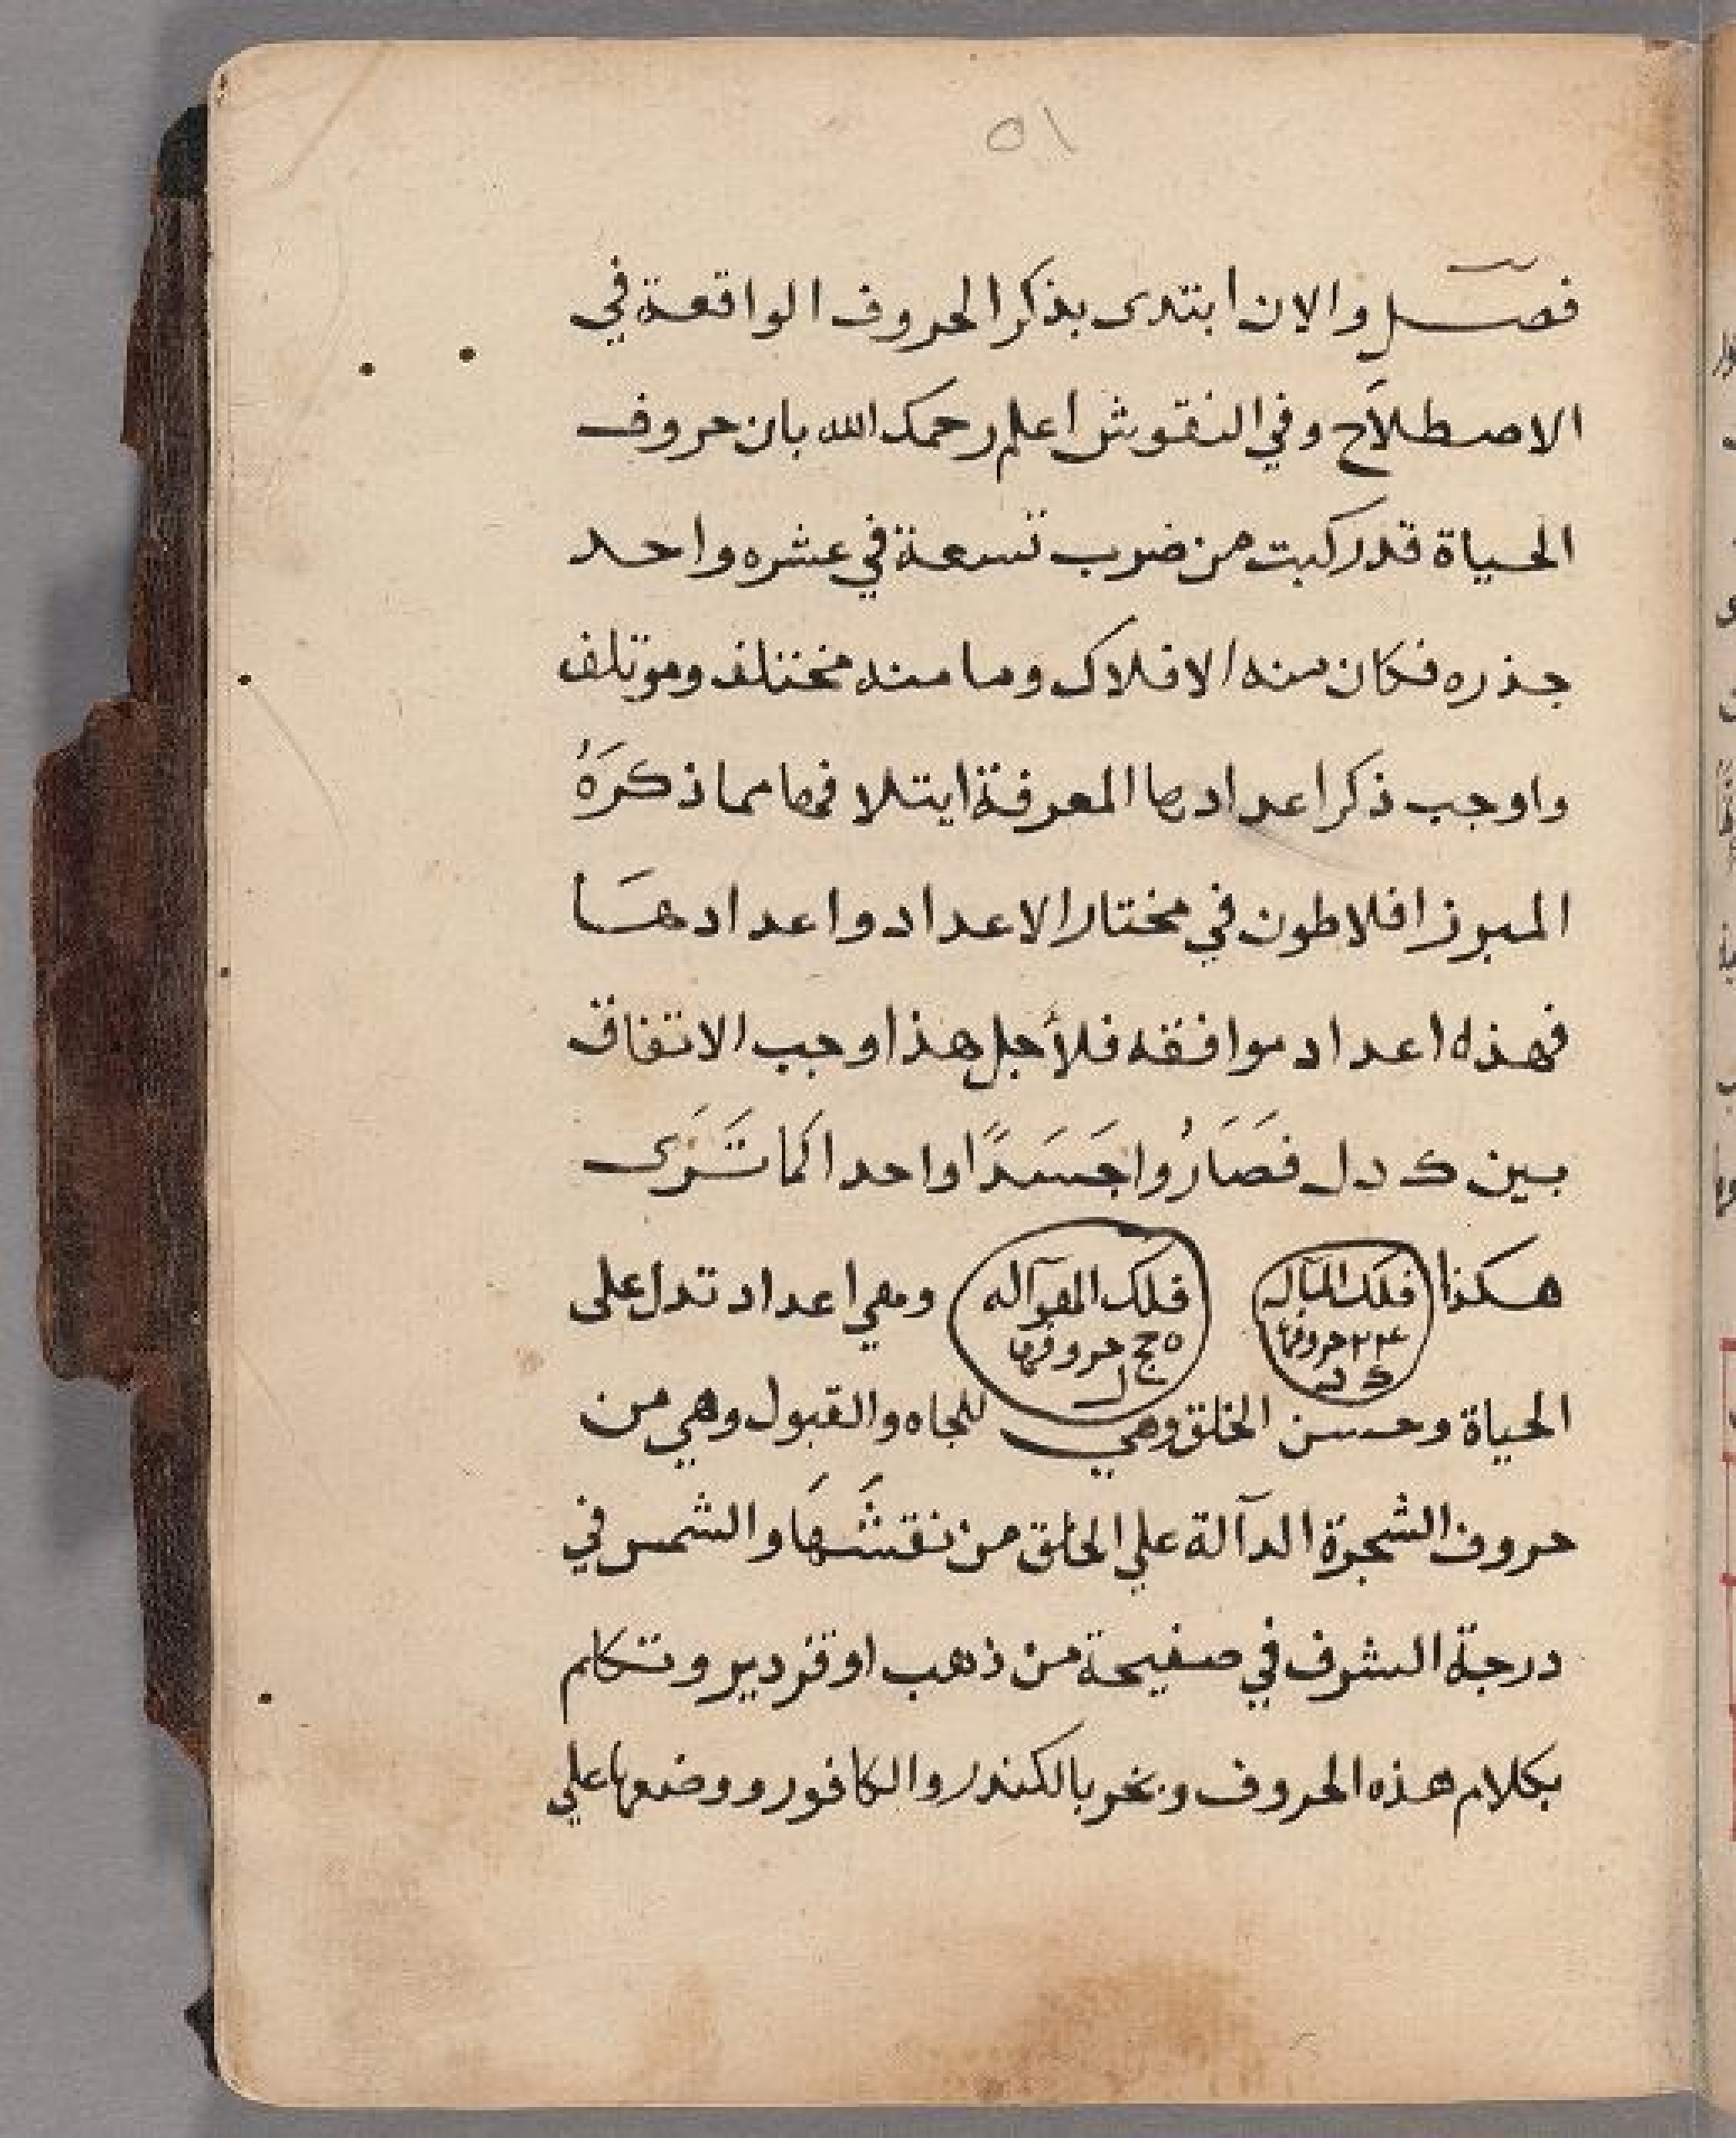 ٥١
فصل والان ابتدى بذكر الحروف الواقعة في
الاصطلاح وفي النقوش اعلم رحمك الله بان حروف
الحياة قد ركبت من ضرب تسعة في عشره واحد
جذره فكان منه الافلاك وما منه مختلف وموتلف
واوجب ذكر اعدادها المعرفة ايتلافها مما ذكرَهُ
المبرز افلاطون في مختار الاعداد واعدادهَا
فهذه اعداد موافقه فلأجل هذا وجب الاتفاق
بين ك د ل فصَارُوا جَسَدًا واحدا كما تَرَى
هكذا
فلك
حروفها
فلك
حروفها
وهي اعداد تدل على
الحياة وحسن الخلق وهي للجاه والقبول وهي من
حروف الشجرة الدآلة علي الخلق من نقشَهَا والشمس في
درجة الشرف في صفيحة من ذهب او قزدير وتكلم
بكلام هذه الحروف وبخر بالكندر والكافور ووضعها علي